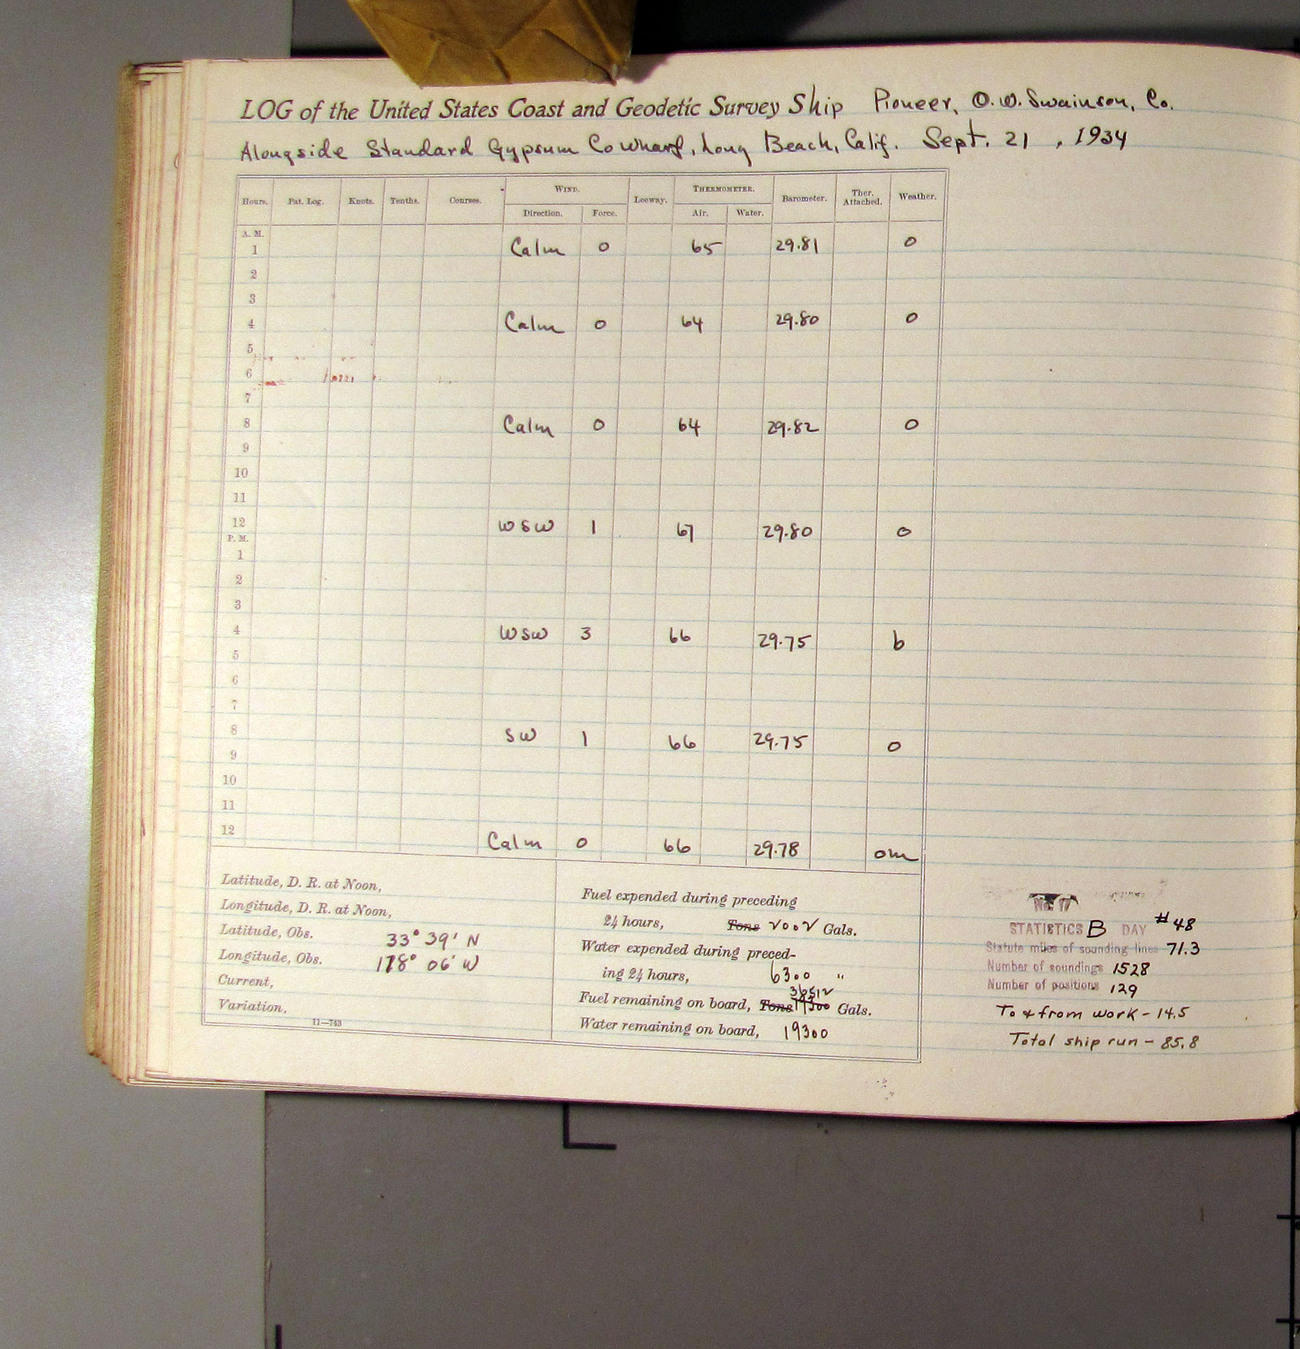 LOG of the United States Coast and Geodetic Survey Ship Pioneer, O.W. Swainson, Co.
Alongside Standard Gypsum Co Wharf, Long Beach, Calif. Sept. 21, 1934
Hours. Pat. Log. Knots. Tenths. Courses. WIND. Direction. Force. Leeway. THERMOMETER. Air. Water. Barometer. Ther. Attached. Weather.
A. M.
1 Calm 0 65 29.81 o
2
3
4 Calm 0 64 29.80 o
5
6
7
8 Calm 0 64 29.82 o
9
10
11
12 WSW 1 67 29.80 o
P. M.
1
2
3
4 WSW 3 66 29.75 b
5
6
7
8 SW 1 66 29.75 o
9
10
11
12 Calm 0 66 29.78 om
Latitude, D. R. at Noon,
Longitude, D. R. at Noon,
Latitude, Obs. 33° 39' N
Longitude, Obs. 118° 06' W
Current,
Variation,
11—743
Fuel expended during preceding
24 hours, Tons 2002 Gals.
Water expended during preced-
ing 24 hours, 6300 "
36512
Fuel remaining on board, Tons 19300 Gals.
Water remaining on board, 19300
No 17
STATISTICS B DAY #48
Statute miles of sounding lines 71.3
Number of soundings 1528
Number of positions 129
To & from work - 14.5
Total ship run - 85.8